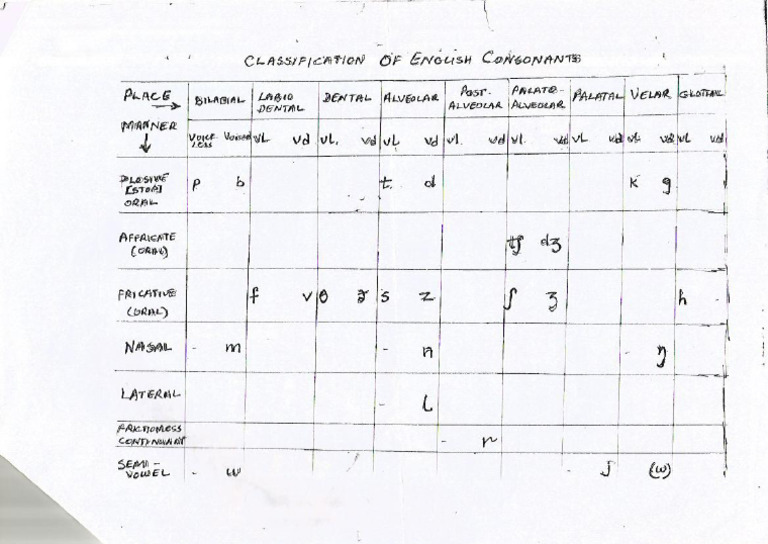 CLASSIFICATION OF ENGLISH CONSONANTS
PLACE → BILABIAL LABIO DENTAL DENTAL ALVEOLAR POST- ALVEOLAR PALATO- ALVEOLAR PALATAL VELAR GLOTTAL
MANNER ↓ VOICE- LESS VOICED VL Vd VL. Vd VL Vd VL. Vd VL. Vd VL Vd VL Vd VL Vd
PLOSIVE [STOP] ORAL p b t d k g
AFFRICATE (ORAL) tʃ dʒ
FRICATIVE (ORAL) f v θ ð s z ʃ ʒ h
NASAL - m - n - ŋ
LATERAL - l
FRICTIONLESS CONTINUANT - r
SEMI- VOWEL - w - j (w)